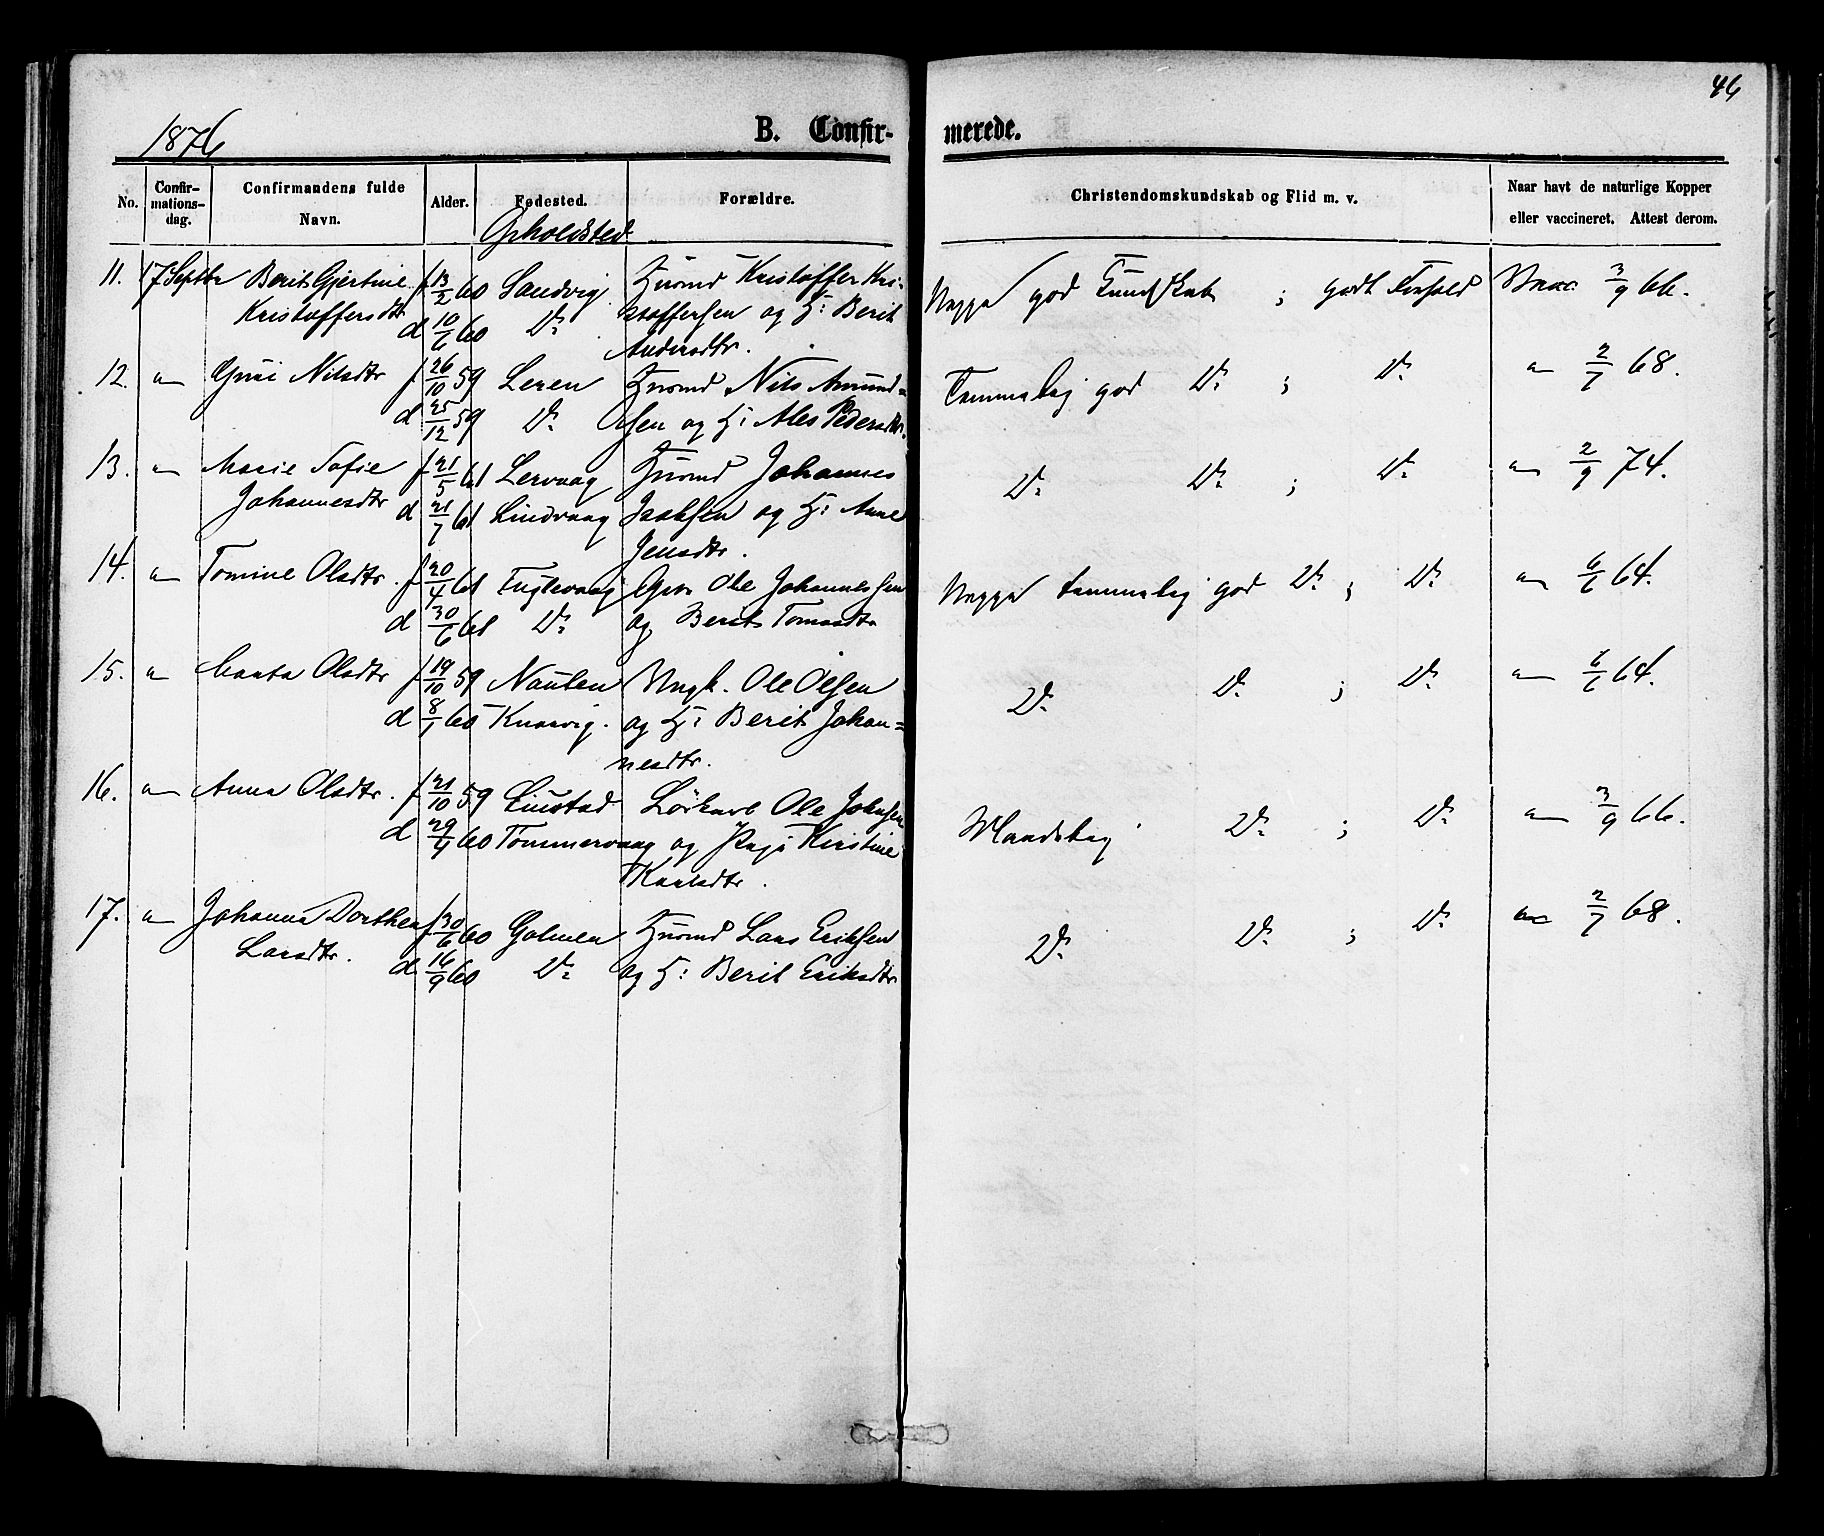 46
1876
B. Confir-
merede.
No.
Confir-
mations-
dag.
Confirmandens fulde
Navn.
Alder.
Fødested.
Opholdsted
Forældre.
Christendomskundskab og Flid m. v.
Naar havt de naturlige Kopper
eller vaccineret. Attest derom.
11. 17 Septbr Berit Gjertine f 13/2 60 Sandvig Husmd Kristoffer Kri-
Kristoffersdtr d 10/6 60 Do stoffersen og H: Berit
Andersdtr.
god Kundskab ; godt Forhold Vacc 3/9 66.
12. " Guri Nilsdtr f 26/10 59 Leren Husmd Nils Amund=
d 25/12 59 Do sen og H: Ales Pedersdtr.
Temmelig god Do ; Do " 2/7 68.
13. " Marie Sofie f 21/5 61 Lervaag Husmd Johannes
Johannesdtr d 21/7 61 Lindvaag Isaksen og H: Anne
Jensdtr.
Do Do ; Do " 2/9 74.
14. " Tomine Olsdtr. f 20/4 61 Fuglevaag Grb. Ole Johannessen
d 30/6 61 Do og Berit Tomasdtr
temmelig god Do ; Do " 6/6 64.
15. " Olsdtr f 19/10 59 Nausten Ungk. Ole Olsen
d 8/1 60 Knarvig. og H: Berit Johan=
nesdtr.
Do Do ; Do " 6/6 64.
16. " Anna Olsdtr. f 21/10 59 Ole Johnsen
d 29/4 60 Tømmervaag og Pige Kirstine
Karlsdtr.
Maadelig Do ; Do " 3/9 66.
17. " Johanna Dorthea f 30/6 60 Golmen Husmd Lars Eriksen
Larsdtr. d 16/9 60 Do og H: Berit Eriksdtr
Do Do ; Do " 2/7 68.